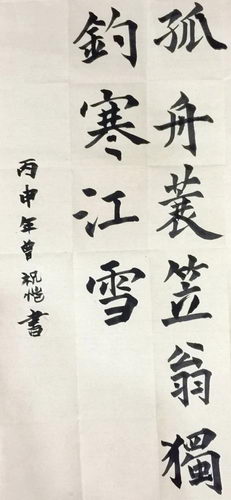 孤舟蓑笠翁獨
釣寒江雪
丙申年曾祝愷書